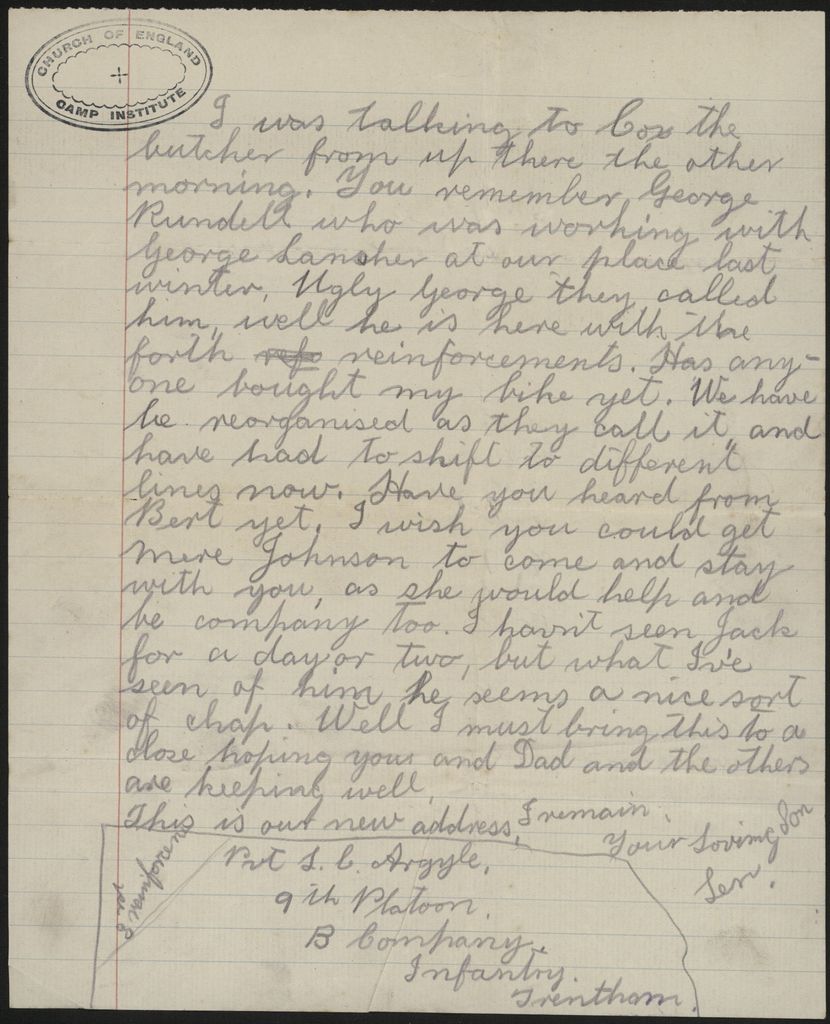 CHURCH OF ENGLAND
CAMP INSTITUTE
I was talking to Cox the
butcher from up there the other
morning. You remember George
Rundell who was working with
George Lansher at our place last
winter, Ugly George they called
him, well he is here with the
forth refo reinforcements. Has any-
one bought my bike yet. We have
be reorganised as they call it, and
have had to shift to different
lines now. Have you heard from
Bert yet. I wish you could get
Mere Johnson to come and stay
with you, as she would help and
be company too. I havn't seen Jack
for a day or two, but what I've
seen of him he seems a nice sort
of chap. Well I must bring this to a
close hoping you and Dad and the others
are keeping well,
This is our new address, I remain.
Your Loving Son
Len.
Pvt L. C. Argyle,
9th Platoon,
B Company,
Infantry.
Trentham.